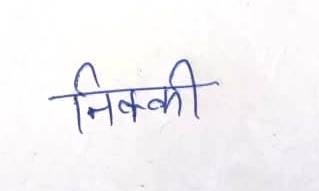 निक्की